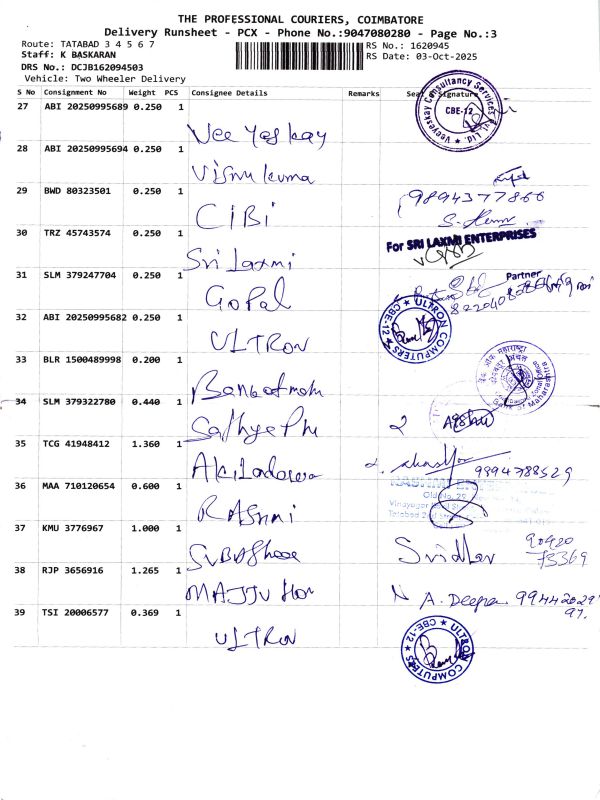 THE PROFESSIONAL COURIERS, COIMBATORE
Delivery Runsheet - PCX - Phone No.:9047080280 - Page No.:3
Route: TATABAD 3 4 5 6 7
RS No.: 1620945
Staff: K BASKARAN
RS Date: 03-Oct-2025
DRS No.: DCJB162094503
Vehicle: Two Wheeler Delivery
S No Consignment No Weight PCS Consignee Details Remarks Signature
27 ABI 20250995689 0.250 1
Vee Yes kay
Veeyeskay Consultancy Services Pvt. Ltd.
CBE-12
28 ABI 20250995694 0.250 1
Vishnu kumar
29 BWD 80323501 0.250 1
CIBI
9894377866
30 TRZ 45743574 0.250 1
Sri Laxmi
For SRI LAXMI ENTERPRISES
Partner
31 SLM 379247704 0.250 1
GOPAL
32 ABI 202509995682 0.250 1
ULTRON
ULTRON COMPUTERS
CBE-12
33 BLR 1500489998 0.200 1
34 SLM 379322780 0.440 1
Sathya Pri
35 TCG 41948412 1.360 1
9894788529
36 MAA 710120654 0.600 1
RASHMI
Old No. 29
37 KMU 3776967 1.000 1
Sridhar
90420
73369
38 RJP 3656916 1.265 1
A. Deepa 9944202991
39 TSI 20006577 0.369 1
ULTRON
ULTRON COMPUTERS
CBE-12